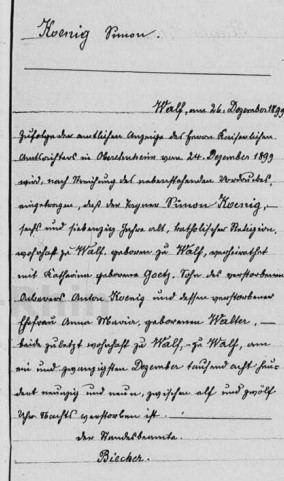 Koenig Simon.
Walf, am 26. Dezember 1899
Zufolge der amtlichen Anzeige des Herrn Kaiserlichen
Amtsrichters in Oberehnheim vom 24. Dezember 1899
wird, nach Streichung des nebenstehenden Vordruckes,
eingetragen, daß der Tagner Simon Koenig, —
sechs und siebenzig Jahre alt, katholischer Religion,
wohnhaft zu Walf, geboren zu Walf, verheirathet
mit Katharina geborene Goetz, Sohn des verstorbenen
Ackerers Anton Koenig und dessen verstorbener
Ehefrau Anna Maria, geborenen Walter, —
beide zuletzt wohnhaft zu Walf, – zu Walf, am
ein und zwanzigsten Dezember tausend acht hun-
dert neunzig und neun, zwischen elf und zwölf
Uhr Nachts verstorben ist. —
Der Standesbeamte.
Biecher.